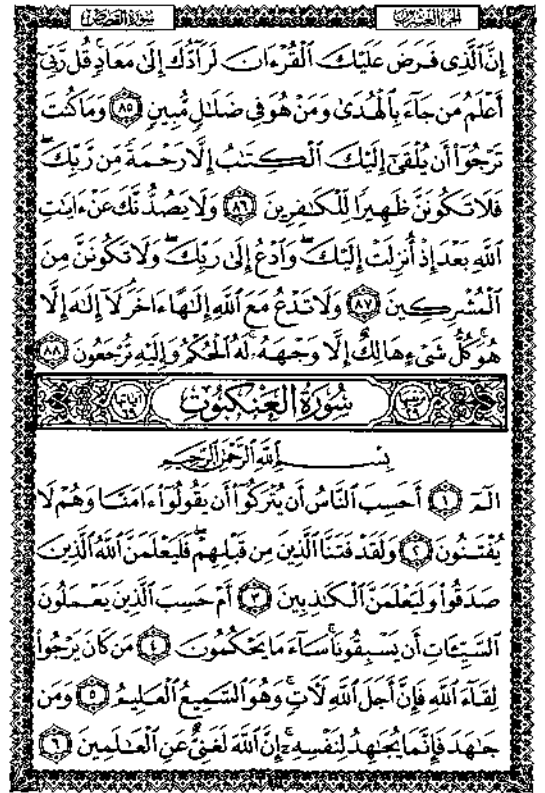 سورة القصص
الجزء العشرين
إِنَّ ٱلَّذِى فَرَضَ عَلَيْكَ ٱلْقُرْءَانَ لَرَآدُّكَ إِلَىٰ مَعَادٍ قُل رَّبِّىٓ
أَعْلَمُ مَن جَآءَ بِٱلْهُدَىٰ وَمَنْ هُوَ فِى ضَلَٰلٍ مُّبِينٍ ٨٥ وَمَا كُنتَ
تَرْجُوٓا۟ أَن يُلْقَىٰٓ إِلَيْكَ ٱلْكِتَٰبُ إِلَّا رَحْمَةً مِّن رَّبِّكَ ۖ
فَلَا تَكُونَنَّ ظَهِيرًا لِّلْكَٰفِرِينَ ٨٦ وَلَا يَصُدُّنَّكَ عَنْ ءَايَٰتِ
ٱللَّهِ بَعْدَ إِذْ أُنزِلَتْ إِلَيْكَ ۖ وَٱدْعُ إِلَىٰ رَبِّكَ ۖ وَلَا تَكُونَنَّ مِنَ
ٱلْمُشْرِكِينَ ٨٧ وَلَا تَدْعُ مَعَ ٱللَّهِ إِلَٰهًا ءَاخَرَ ۘ لَآ إِلَٰهَ إِلَّا
هُوَ ۚ كُلُّ شَىْءٍ هَالِكٌ إِلَّا وَجْهَهُۥ ۚ لَهُ ٱلْحُكْمُ وَإِلَيْهِ تُرْجَعُونَ ٨٨
سُورَةُ العَنْكَبُوتِ
آياتها ٦٩
بِسْمِ ٱللَّهِ ٱلرَّحْمَٰنِ ٱلرَّحِيمِ
الٓمٓ ١ أَحَسِبَ ٱلنَّاسُ أَن يُتْرَكُوٓا۟ أَن يَقُولُوٓا۟ ءَامَنَّا وَهُمْ لَا
يُفْتَنُونَ ٢ وَلَقَدْ فَتَنَّا ٱلَّذِينَ مِن قَبْلِهِمْ ۖ فَلَيَعْلَمَنَّ ٱللَّهُ ٱلَّذِينَ
صَدَقُوا۟ وَلَيَعْلَمَنَّ ٱلْكَٰذِبِينَ ٣ أَمْ حَسِبَ ٱلَّذِينَ يَعْمَلُونَ
ٱلسَّيِّـَٔاتِ أَن يَسْبِقُونَا ۚ سَآءَ مَا يَحْكُمُونَ ٤ مَن كَانَ يَرْجُوا۟
لِقَآءَ ٱللَّهِ فَإِنَّ أَجَلَ ٱللَّهِ لَـَٔاتٍ ۚ وَهُوَ ٱلسَّمِيعُ ٱلْعَلِيمُ ٥ وَمَن
جَٰهَدَ فَإِنَّمَا يُجَٰهِدُ لِنَفْسِهِۦٓ ۚ إِنَّ ٱللَّهَ لَغَنِىٌّ عَنِ ٱلْعَٰلَمِينَ ٦